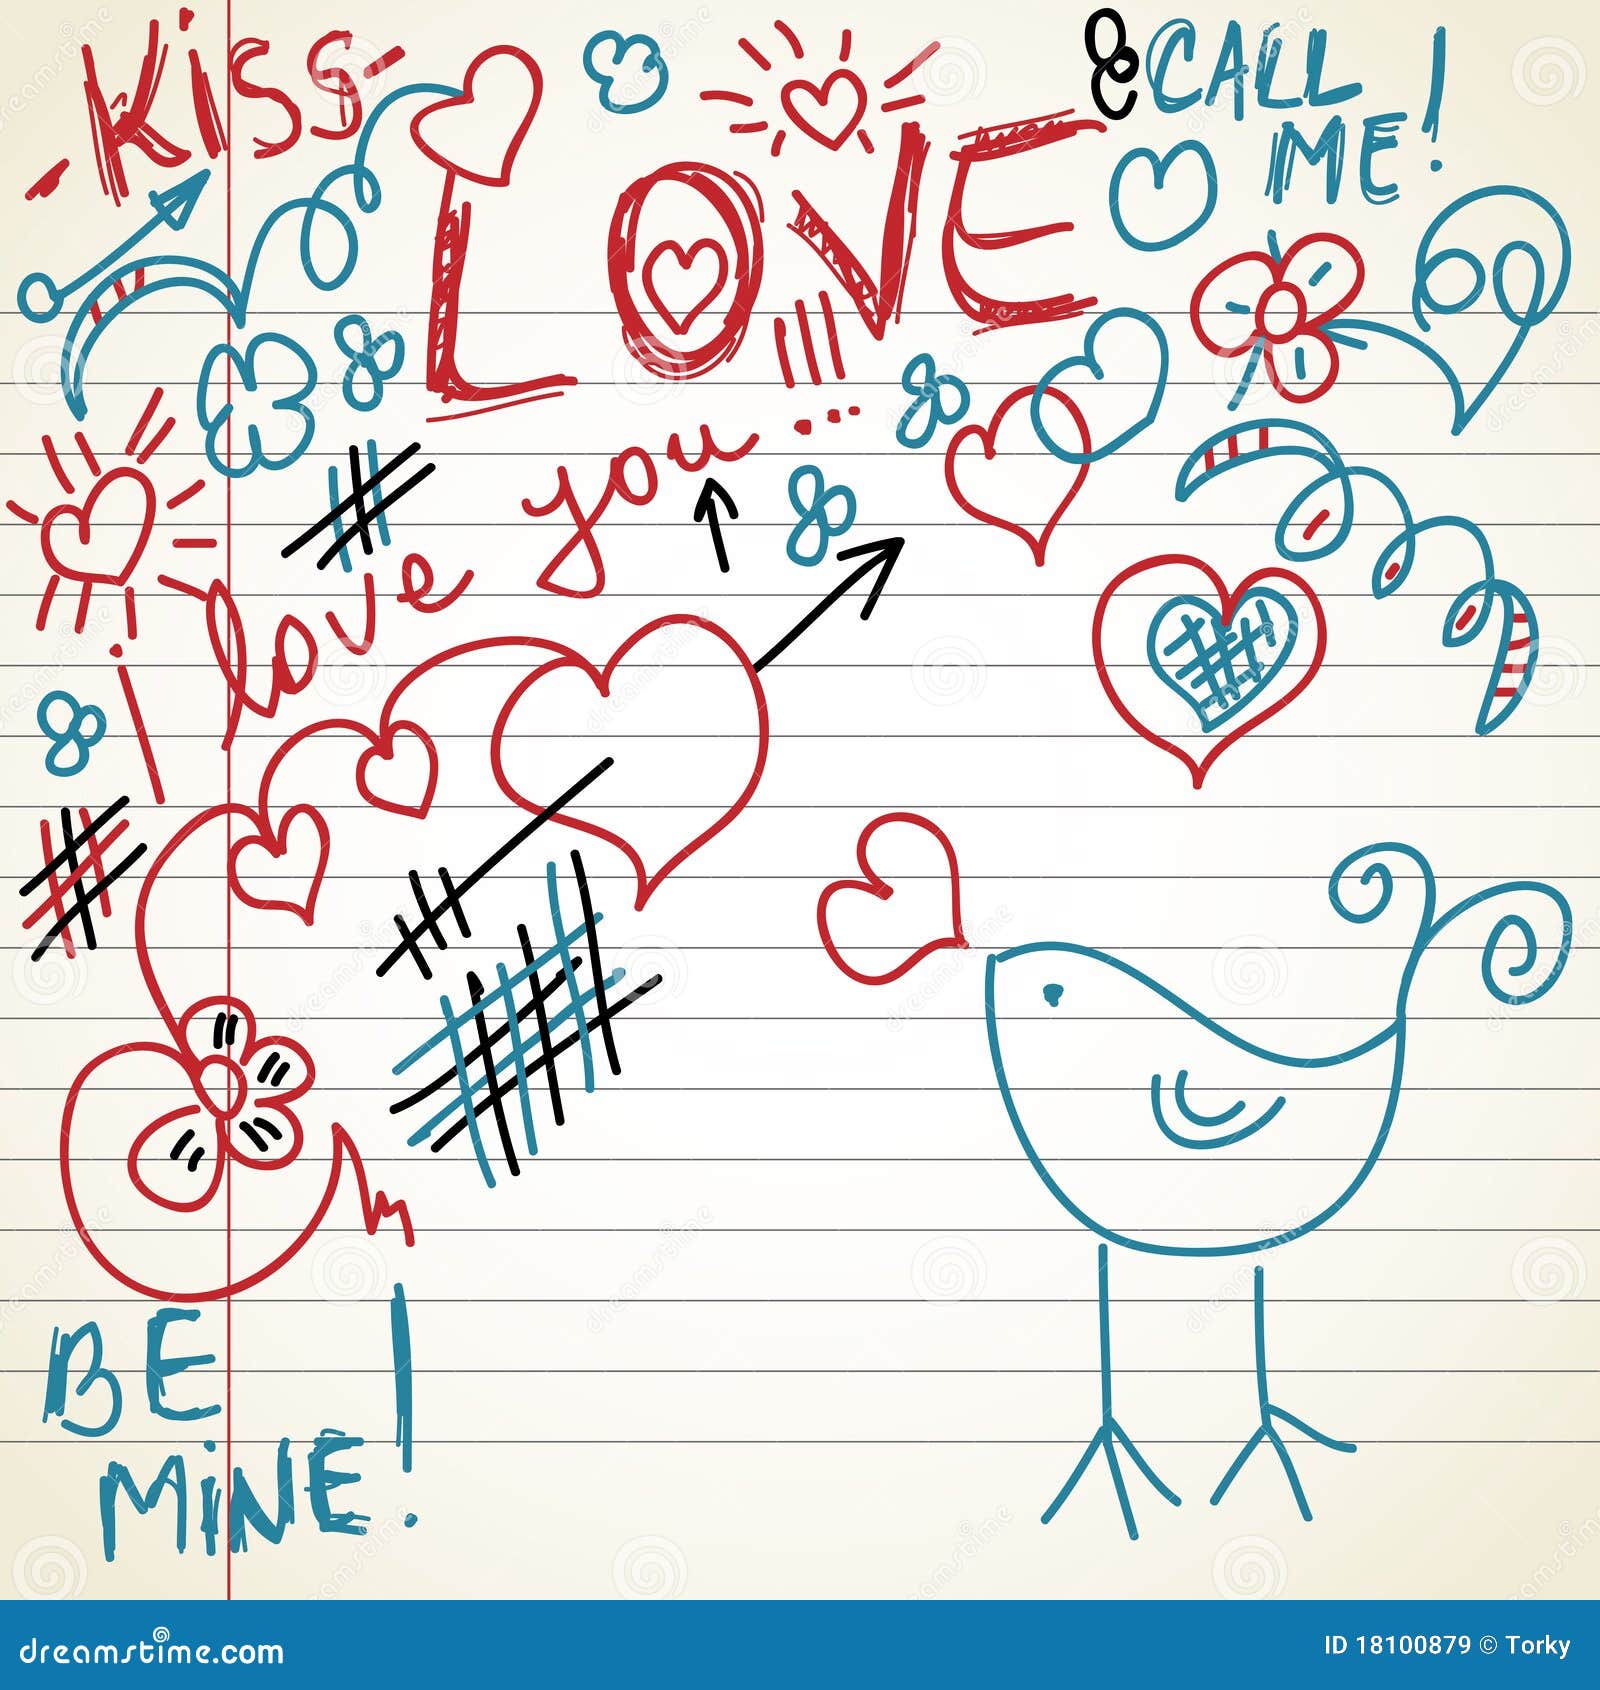 Kiss
LOVE
CALL
ME!
love you...
BE
MiNE!
dreamstime.com
ID 18100879 © Torky